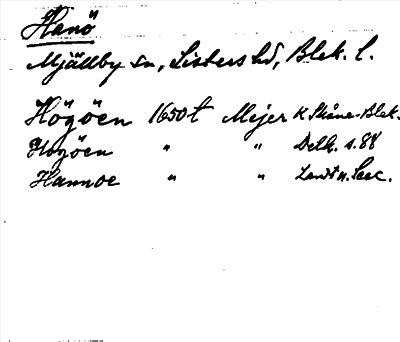 Hanö
Mjällby sn, Listers hd, Blek. l.
Högöen 1650t Mejer K Skåne-Blek.
Hogöen " " Delk. s. 88
Hannoe " "